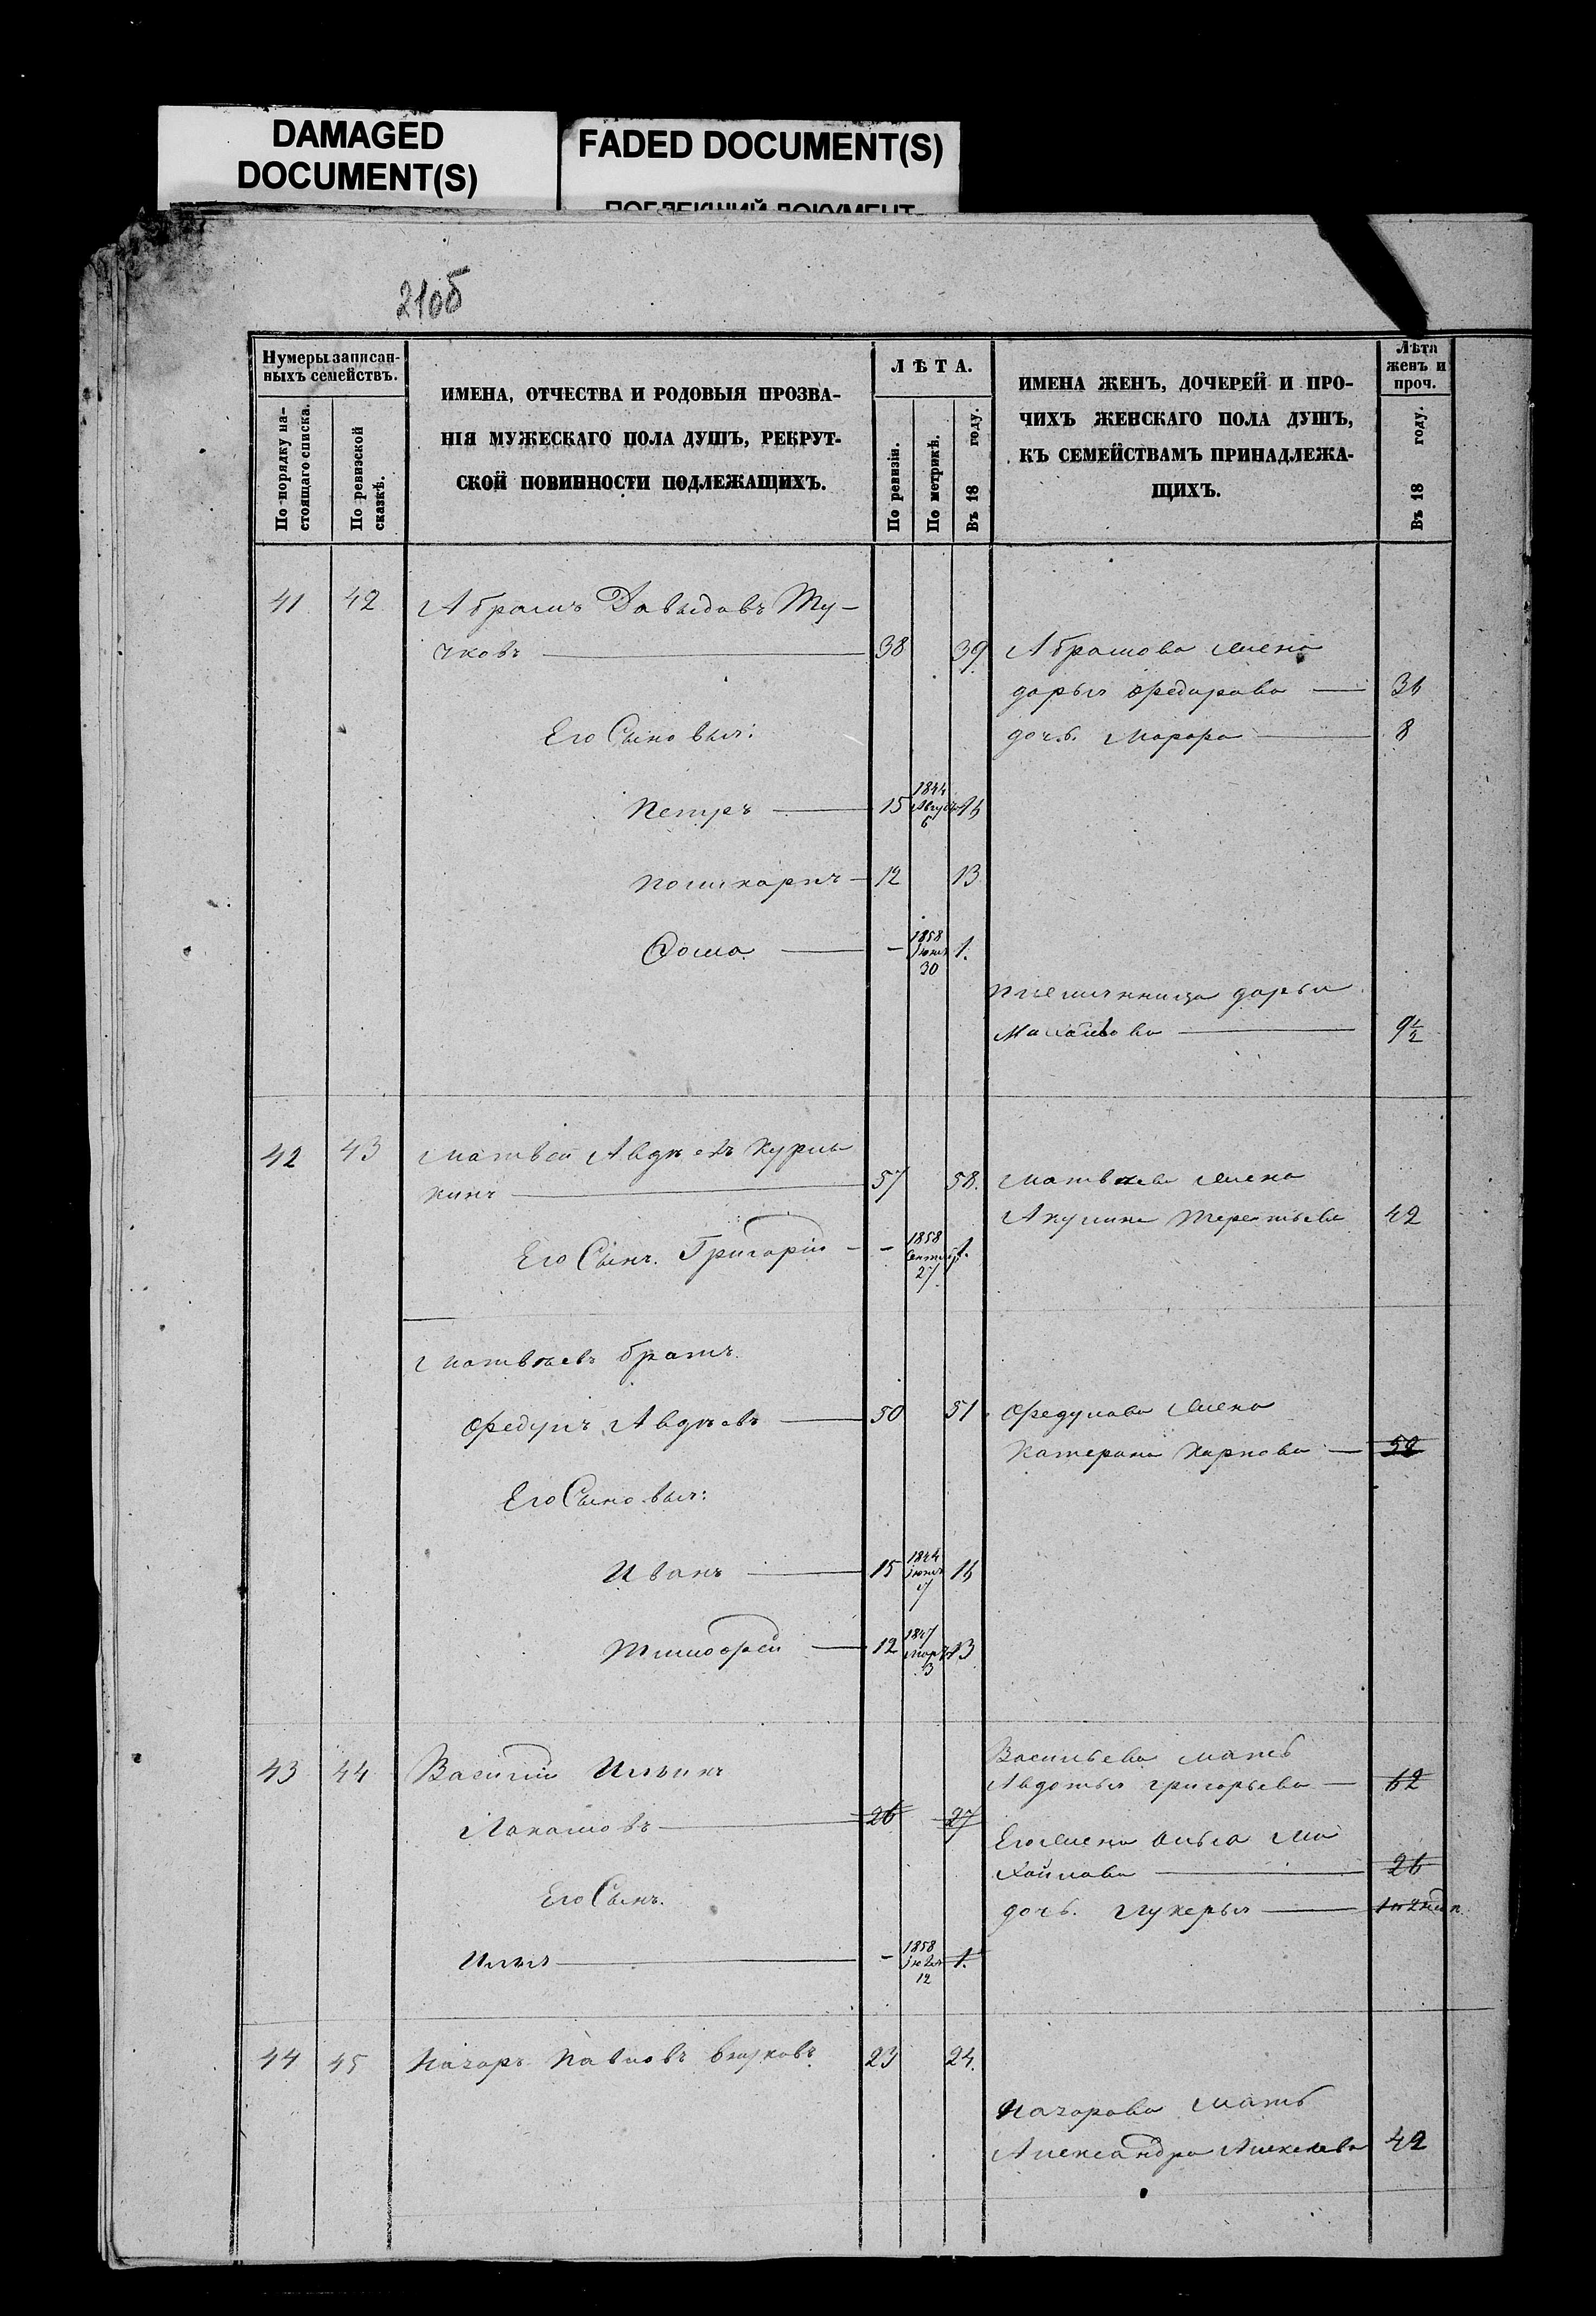 DAMAGED
DOCUMENT(S)
FADED DOCUMENT(S)
210б
Нумеры записан-
ныхъ семействъ.
По порядку на-
стоящаго списка.
По ревизской
сказкѣ.
ИМЕНА, ОТЧЕСТВА И РОДОВЫЯ ПРОЗВА-
НІЯ МУЖЕСКАГО ПОЛА ДУШЪ, РЕКРУТ-
СКОЙ ПОВИННОСТИ ПОДЛЕЖАЩИХЪ.
ЛѢТА.
По ревизіи.
По метрикѣ.
Въ 18 году.
ИМЕНА ЖЕНЪ, ДОЧЕРЕЙ И ПРО-
ЧИХЪ ЖЕНСКАГО ПОЛА ДУШЪ,
КЪ СЕМЕЙСТВАМЪ ПРИНАДЛЕЖА-
ЩИХЪ.
Лѣта
женъ и
проч.
Въ 18 году.
41 42 Абрамъ Давыдовъ Ту-
чковъ 38 39 Абрамова жена
дарья Федорова 36
Его Сыновья: дочь Марфа 8
Петръ 15 1844 Август 6 16
Поликарпъ 12 13
Фома - 1858 30 1.
племянница дарья
Михайлова 9½
42 43 Матвей Авдѣевъ
кинъ 57 58. Матвѣева жена
Акулина Терентьева 42
Его Сынъ Григорій - 1858 Сентябр 27 1.
Матвѣевъ братъ
Федулъ Авдѣевъ 50 51 Федулова жена
Катерина Карпова 52
Его Сыновья:
Иванъ 15 1844 17 16
Тимофей 12 1847 Март 13 13
43 44 Василій Ильинъ Васильева мать
Авдотья григорьева 62
Лакашовъ 26 27
Его жена Ми
хайлова 26
Его Сынъ.
дочь Лукерья
Илья - 1858 12 1.
44 45 Назаръ Павловъ 23 24.
Назарова мать
Александра Алексѣева 42